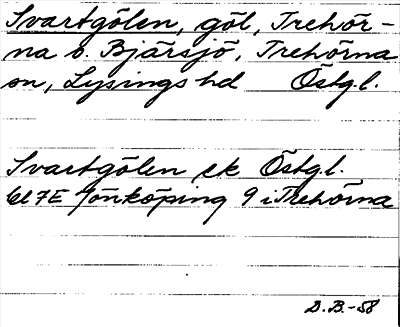 Svartgölen, göl, Trehör-
na o. Bjärsjö, Trehörna
sn, Lysings hd Östg.l.
Svartgölen ek Östgl.
bl 7E Jönköping 9 i Trehörna
D.B.-58